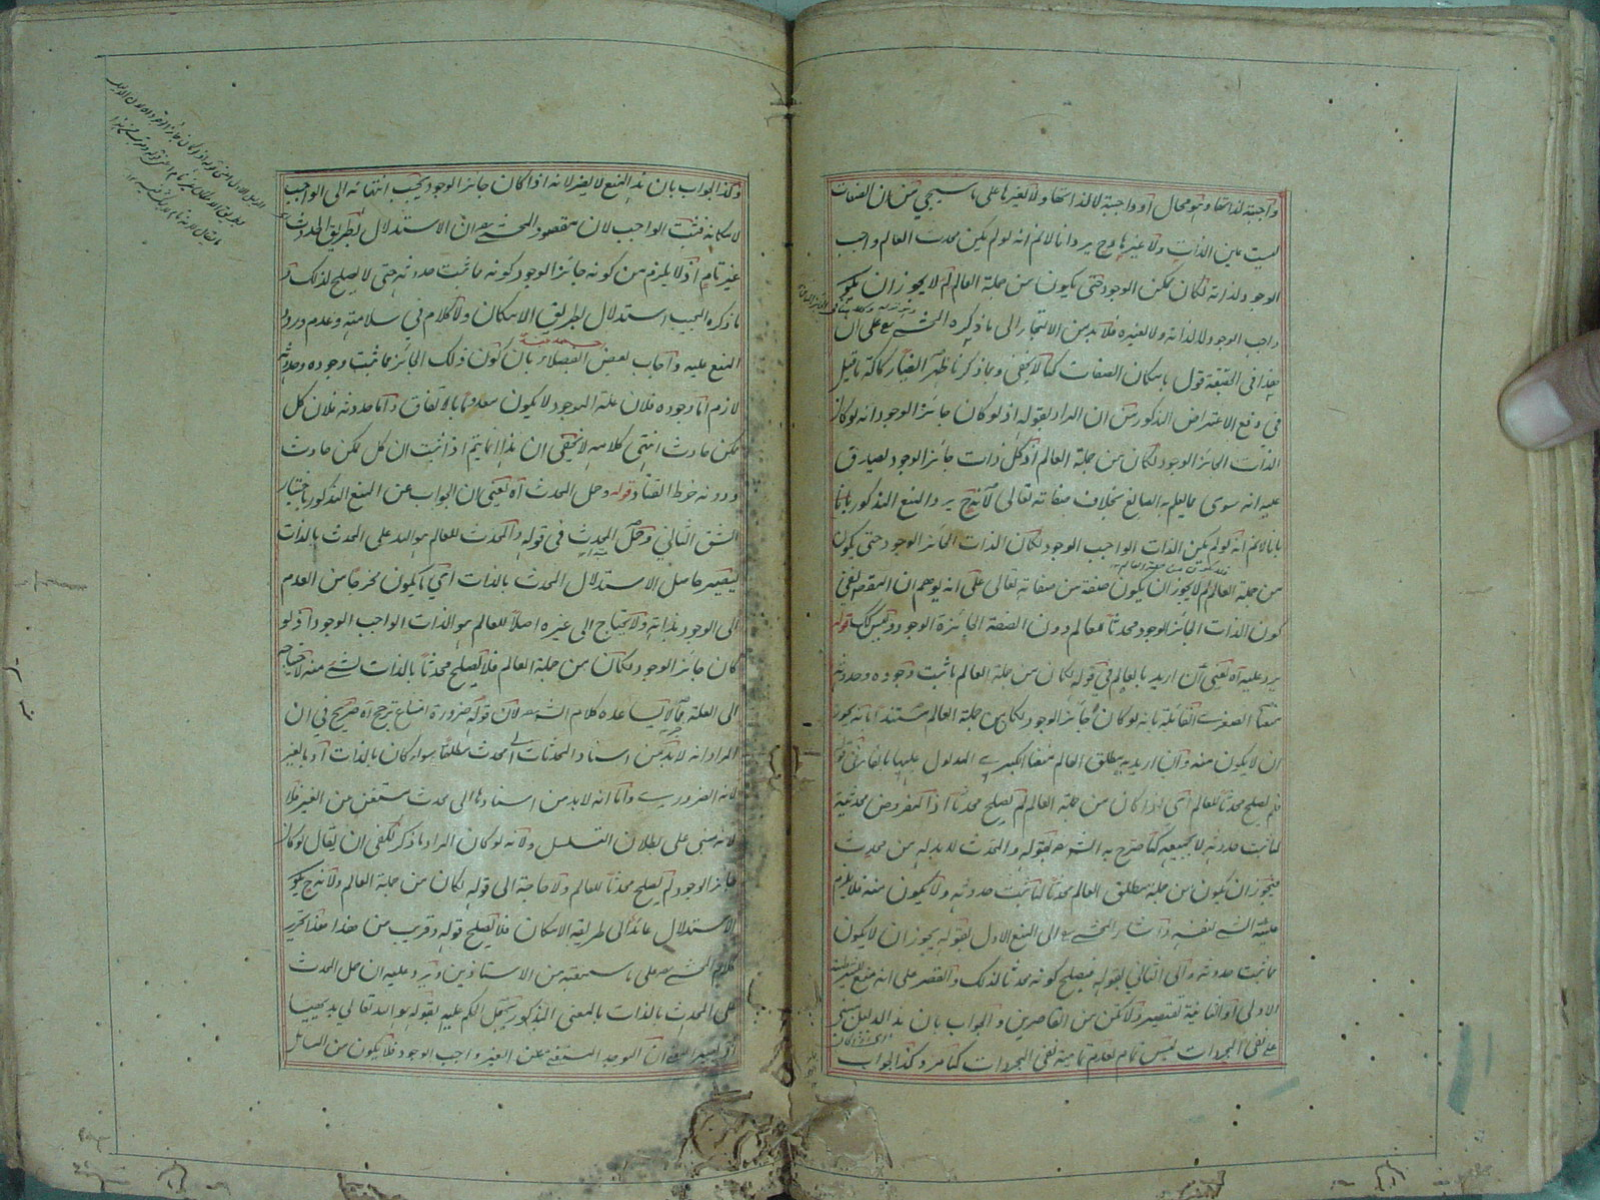 واجبة لذاتها وهو محال أو واجبة لا لذاتها ولا لغيرها على ما سيجيء من ان الصفات
ليست عين الذات ولا غيرها وح يرد انا لا نم انه لو لم يكن محدث العالم واجب
الوجود لذاته لكان ممكن الوجود حتى يكون من جملة العالم لم لا يجوز ان يكون
واجب الوجود لا لذاته ولا لغيره فلا بد من الالتجاء الى ما ذكره المحشي على ان
هذا في الحقيقة قول بامكان الصفات كما لا يخفى وبما ذكرنا ظهر ايضا ركاكة ما قيل
في دفع الاعتراض المذكور من ان المراد بقوله اذ لو كان جائز الوجود انه لو كان
الذات الجائز الوجود لكان من جملة العالم اذ كل ذات جائز الوجود يصدق
عليه انه سوى ما يعلم به الصانع بخلاف صفاته تعالى لانه ح يرد المنع المذكور بانا
بانا لا نم انه لو لم يكن الذات الواجب الوجود لكان الذات الجائز الوجود حتى يكون
من جملة العالم لم لا يجوز ان يكون صفة من صفاته تعالى على انه يوهم ان المقصود نفي
كون الذات الجائز الوجود محدثا للعالم دون الصفة الجائزة الوجود وليس كك قوله
يرد عليه اه يعني ان اريد بالعالم في قوله لكان من جملة العالم ما ثبت وجوده وحدوثه
منعنا الصغرى القائلة بانه لو كان جائز الوجود لكان من جملة العالم مستندا بانه يجوز
ان لا يكون منه وان اريد به مطلق العالم منعنا الكبرى المدلول عليها بالفاء في قوله
فلم يصلح محدثا للعالم اي اذا كان من جملة العالم لم يصلح محدثا اذ المفروض محدثية
لما ثبت حدوثه لا لجميعه كما صرح به الشرح بقوله والمحدث لا بد له من محدث
فيجوز ان يكون من جملة مطلق العالم محدثا لما ثبت حدوثه ولا يكون منه فلا يلزم
علية الشيء لنفسه واشار المحشي الى المنع الاول بقوله يجوز ان لا يكون
مما ثبت حدوثه والى الثاني بقوله فيصلح كونه محدثا لذلك والقصر على انه منع
الاولى او الثانية تقتصير ولا تكن من القاصرين والجواب بان هذا الدليل مبني
على نفي المجردات ليس تمام لعدم تمامية نفي المجردات كما مر وكذا الجواب
وكذا الجواب بان هذا المنع لا يضر لانه اذا كان جائز الوجود يجب انتهائه الى الواجب
لامكانه فثبت الواجب لان مقصود المحشي ان الاستدلال بطريق الحدوث
غير تام اذ لا يلزم من كونه جائز الوجود كونه مما ثبت حدوثه حتى لا يصلح لذلك
ما ذكره المجيب استدلال بطريق الامكان ولا كلام في سلامته وعدم ورود
المنع عليه واجاب بعض الفضلاء بان كون ذلك الجائز مما ثبت وجوده وحدوثه
لازم اما وجوده فلان علة الموجود لا يكون معدوما بالاتفاق واما حدوثه فلان كل
ممكن حادث انتهى كلامه لا يخفى ان هذا انما يتم اذا ثبت ان كل ممكن حادث
ودونه خرط القتاد قوله وحل المحدث اه يعني ان الجواب عن المنع المذكور باختيار
الشق الثاني وحمل المحدث في قوله والمحدث للعالم هو الله على المحدث بالذات
ليصير حاصل الاستدلال المحدث بالذات اي ما يكون مخرجا من العدم
الى الوجود بذاته ولا يحتاج الى غيره اصلا للعالم هو الذات الواجب الوجود اذ لو
كان جائز الوجود لكان من جملة العالم فلا يصلح محدثا بالذات لشيء منه لاحتياجه
الى العلة مما لا يساعده كلام الشرح لان قوله ضرورة امتناع ترجح اه صريح في ان
المراد انه لا بد من اسناد المحدثات الى محدث مطلقا سواء كان بالذات او بالغير
لانه الضروري واما انه لا بد من اسنادها الى محدث مستغن من الغير فلا
لانه مبني على بطلان التسلسل ولانه لو كان المراد ما ذكر لكفى ان يقال لو كان
جائز الوجود لم يصلح محدثا للعالم ولا حاجة الى قوله لكان من جملة العالم ولانه ح يكون
الاستدلال عائدا الى طريقة الامكان فلا يصلح قوله وقريب من هذا هذا تحرير
كلام المحشي على ما سمعته من الاستاذين ويرد عليه ان حمل المحدث
على المحدث بالذات بالمعنى المذكور يجعل الحكم عليه بقوله هو الله تعالى بديهيا
ان الموجد المستغني عن الغير واجب الوجود فلا يكون من المسائل